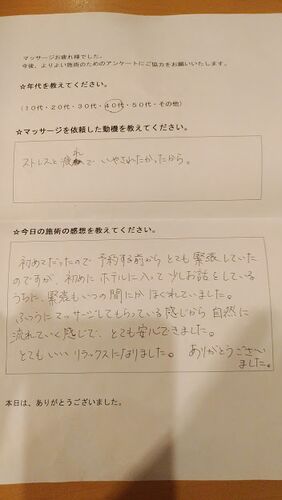 マッサージお疲れ様でした。
今後、よりよい施術のためのアンケートにご協力をお願いいたします。
☆年代を教えてください。
(10代・20代・30代・40代・50代・その他)
☆マッサージを依頼した動機を教えてください。
ストレスと疲れで いやされたかったから。
☆今日の施術の感想を教えてください。
初めてだったので 予約する前から とても 緊張していた
のですが、初めに ホテルに入って 少しお話をしている
うちに、緊張もいつの間にか ほぐれていました。
ふつうに マッサージしてもらっている 感じから 自然に
流れていく感じで、とても安心できました。
とてもいい リラックスになりました。 ありがとうござい
ました。
本日は、ありがとうございました。